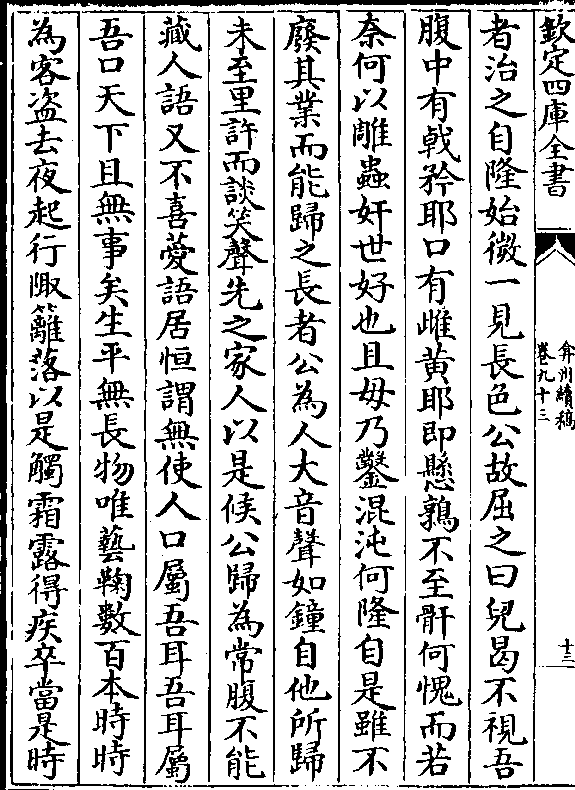 欽定四庫全書
弇州續稿
卷九十三
十三
者治之自隆始微一見長色公故屈之曰兒曷不視吾
腹中有戟矜耶口有雌黃耶即懸鶉不至骭何愧而若
奈何以雕蟲奸世好也且毋乃鑿混沌何隆自是雖不
廢其業而能歸之長者公為人大音聲如鐘自他所歸
未至里許而談笑聲先之家人以是候公歸為常腹不能
藏人語又不喜薆語居恒謂無使人口屬吾耳吾耳屬
吾口天下且無事矣生平無長物唯藝鞠數百本時時
為客盗去夜起行陬籬落以是觸霜露得疾卒當是時